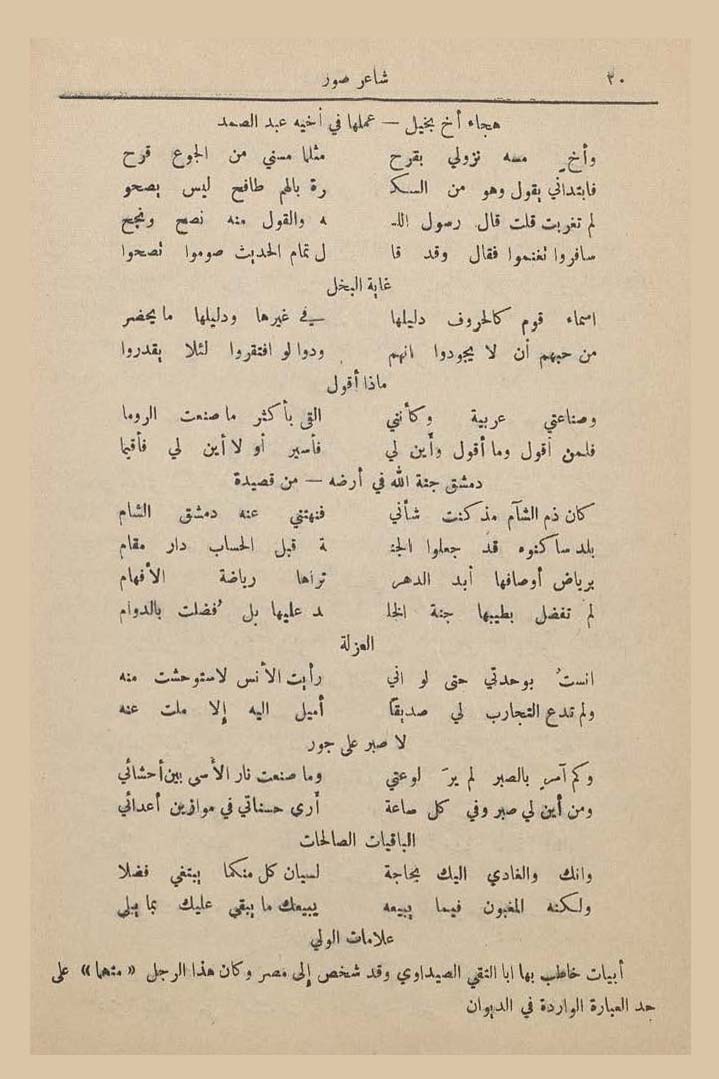 ٣٠ شاعر صور
هجاء أخ بخيل — عملها في أخيه عبد الصمد
وأخ مسه نزولي بقرح مثلما مسني من الجوع قرح
فابتداني يقول وهو من السكـ رة بالهم طافح ليس يصحو
لم تغربت قلت قال رسول اللـ ه والقول منه نصح ونجح
سافروا تغنموا فقال وقد قا ل تمام الحديث صوموا تصحوا
غاية البخل
اسماء قوم كالحروف دليلها في غيرها ودليلها ما يحضر
من حبهم أن لا يجودوا انهم ودوا لو افتقروا لئلا يقدروا
ماذا أقول
وصناعتي عربية وكأنني القى بأكثر ما صنعت الروما
فلمن اقول وما أقول وأين لي فأسير أو لا أين لي فأقيما
دمشق جنة الله في أرضه — من قصيدة
كان ذم الشآم مذ كنت شأني فنهتني عنه دمشق الشام
بلد ساكنوه قد جعلوا الجنـ ة قبل الحساب دار مقام
برياض أوصافها أبد الدهر تراها رياضة الأفهام
لم تفضل بطيبها جنة الخلـ د عليها بل فُضلت بالدوام
العزلة
انستُ بوحدتي حتى لو اني رأيت الأنس لاستوحشت منه
ولم تدع التجارب لي صديقاً أميل اليه إلا ملت عنه
لا صبر على جور
وكم آمرٍ بالصبر لم يرَ لوعتي وما صنعت نار الأسى بين أحشائي
ومن أين لي صبر وفي كل ساعة أرى حسناتي في موازين أعدائي
الباقيات الصالحات
وانك والغادي اليك بحاجة لسيان كل منكما يبتغي فضلا
ولكنه المغبون فيما يبيعه يبيعك ما يبقي عليك بما يبلى
علامات الولي
أبيات خاطب بها ابا التقي الصيداوي وقد شخص إلى مصر وكان هذا الرجل « متهما » على
حد العبارة الواردة في الديوان